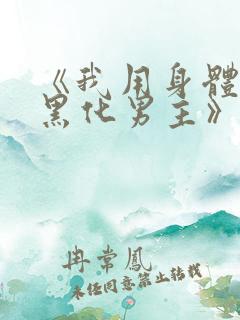 《我用身體
黑化男主》
冉常鳳
未任同意禁止轉載